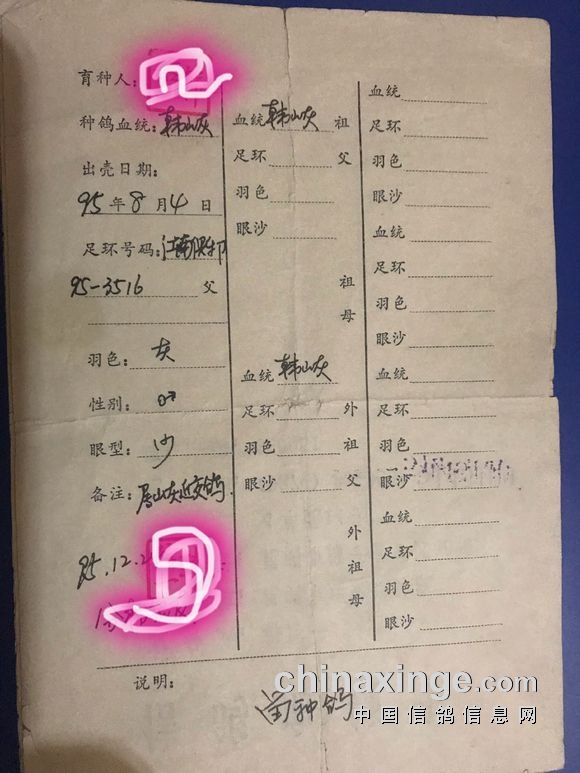 育种人：
种鸽血统：韩山灰
出壳日期：
95年8月4日
足环号码：江南
95-3516
羽色：灰
性别：♂
眼型：沙
备注：
95.12.2
血统韩山灰 祖
足环 父
羽色
眼沙
父
祖
母
血统韩山灰
足环 外
羽色 祖
眼沙 父
外
祖
母
血统
足环
羽色
眼沙
血统
足环
羽色
眼沙
血统
足环
羽色
眼沙
血统
足环
羽色
眼沙
说明：
留种鸽
chinaxinge.com
中国信鸽信息网